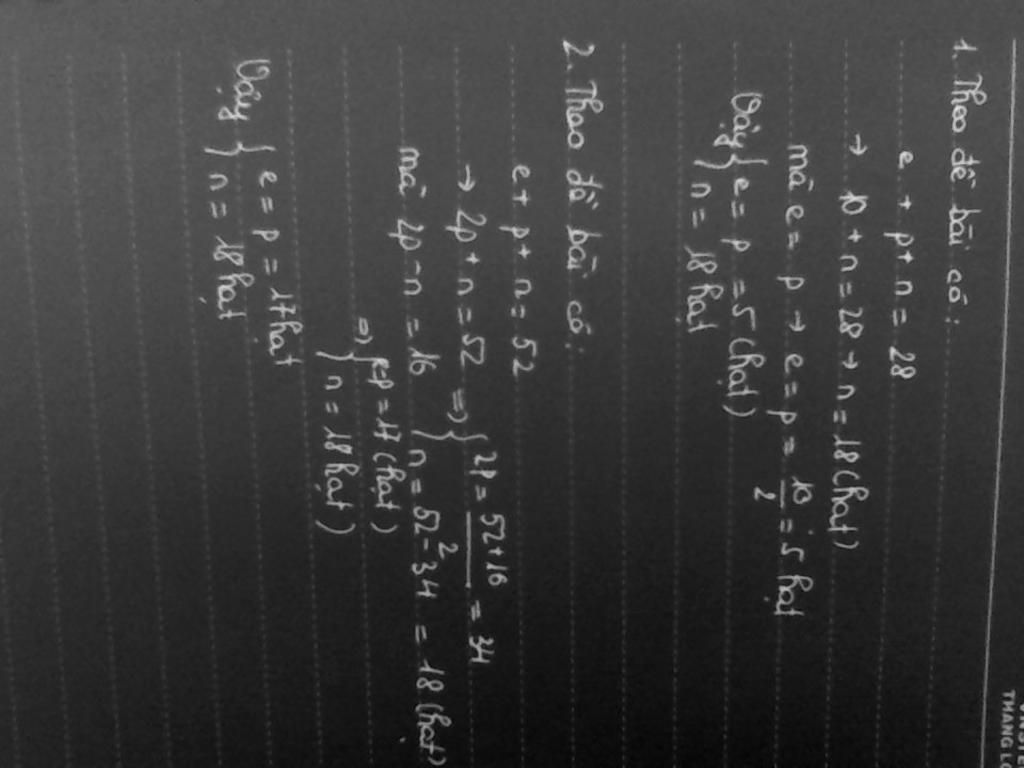 1. Theo đề bài có:
e + p + n = 28
→ 10 + n = 28 → n = 18 (hạt)
mà e = p → e = p = 10/2 = 5 hạt
Vậy { e = p = 5 (hạt)
{ n = 18 hạt
2. Theo đề bài có:
e + p + n = 52
→ 2p + n = 52 ⇒ { 2p = 52+16/2 = 34
mà 2p - n = 16 { n = 52 - 34 = 18 (hạt)
⇒ { e=p = 17 (hạt)
{ n = 18 hạt)
Vậy { e = p = 17 hạt
{ n = 18 hạt
THANG LO